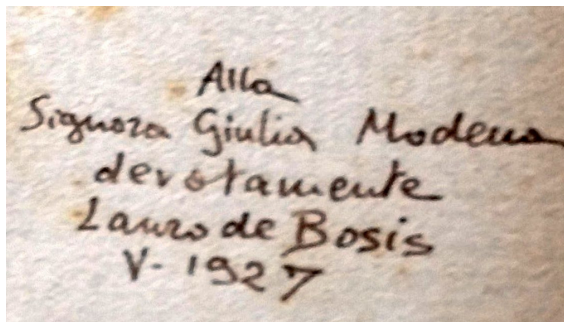 Alla
Signora Giulia Modena
devotamente
Lauro de Bosis
V- 1927